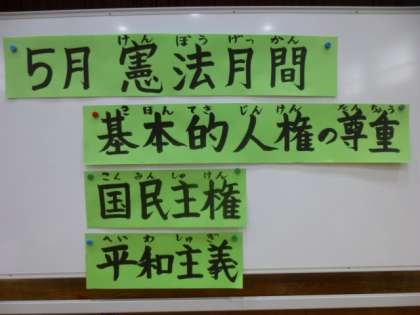 けん ぽう げっ かん
5月 憲法月間
き ほん てき じん けん そん ちょう
基本的人権の尊重
こく みん しゅ けん
国民主権
へい わ しゅ ぎ
平和主義